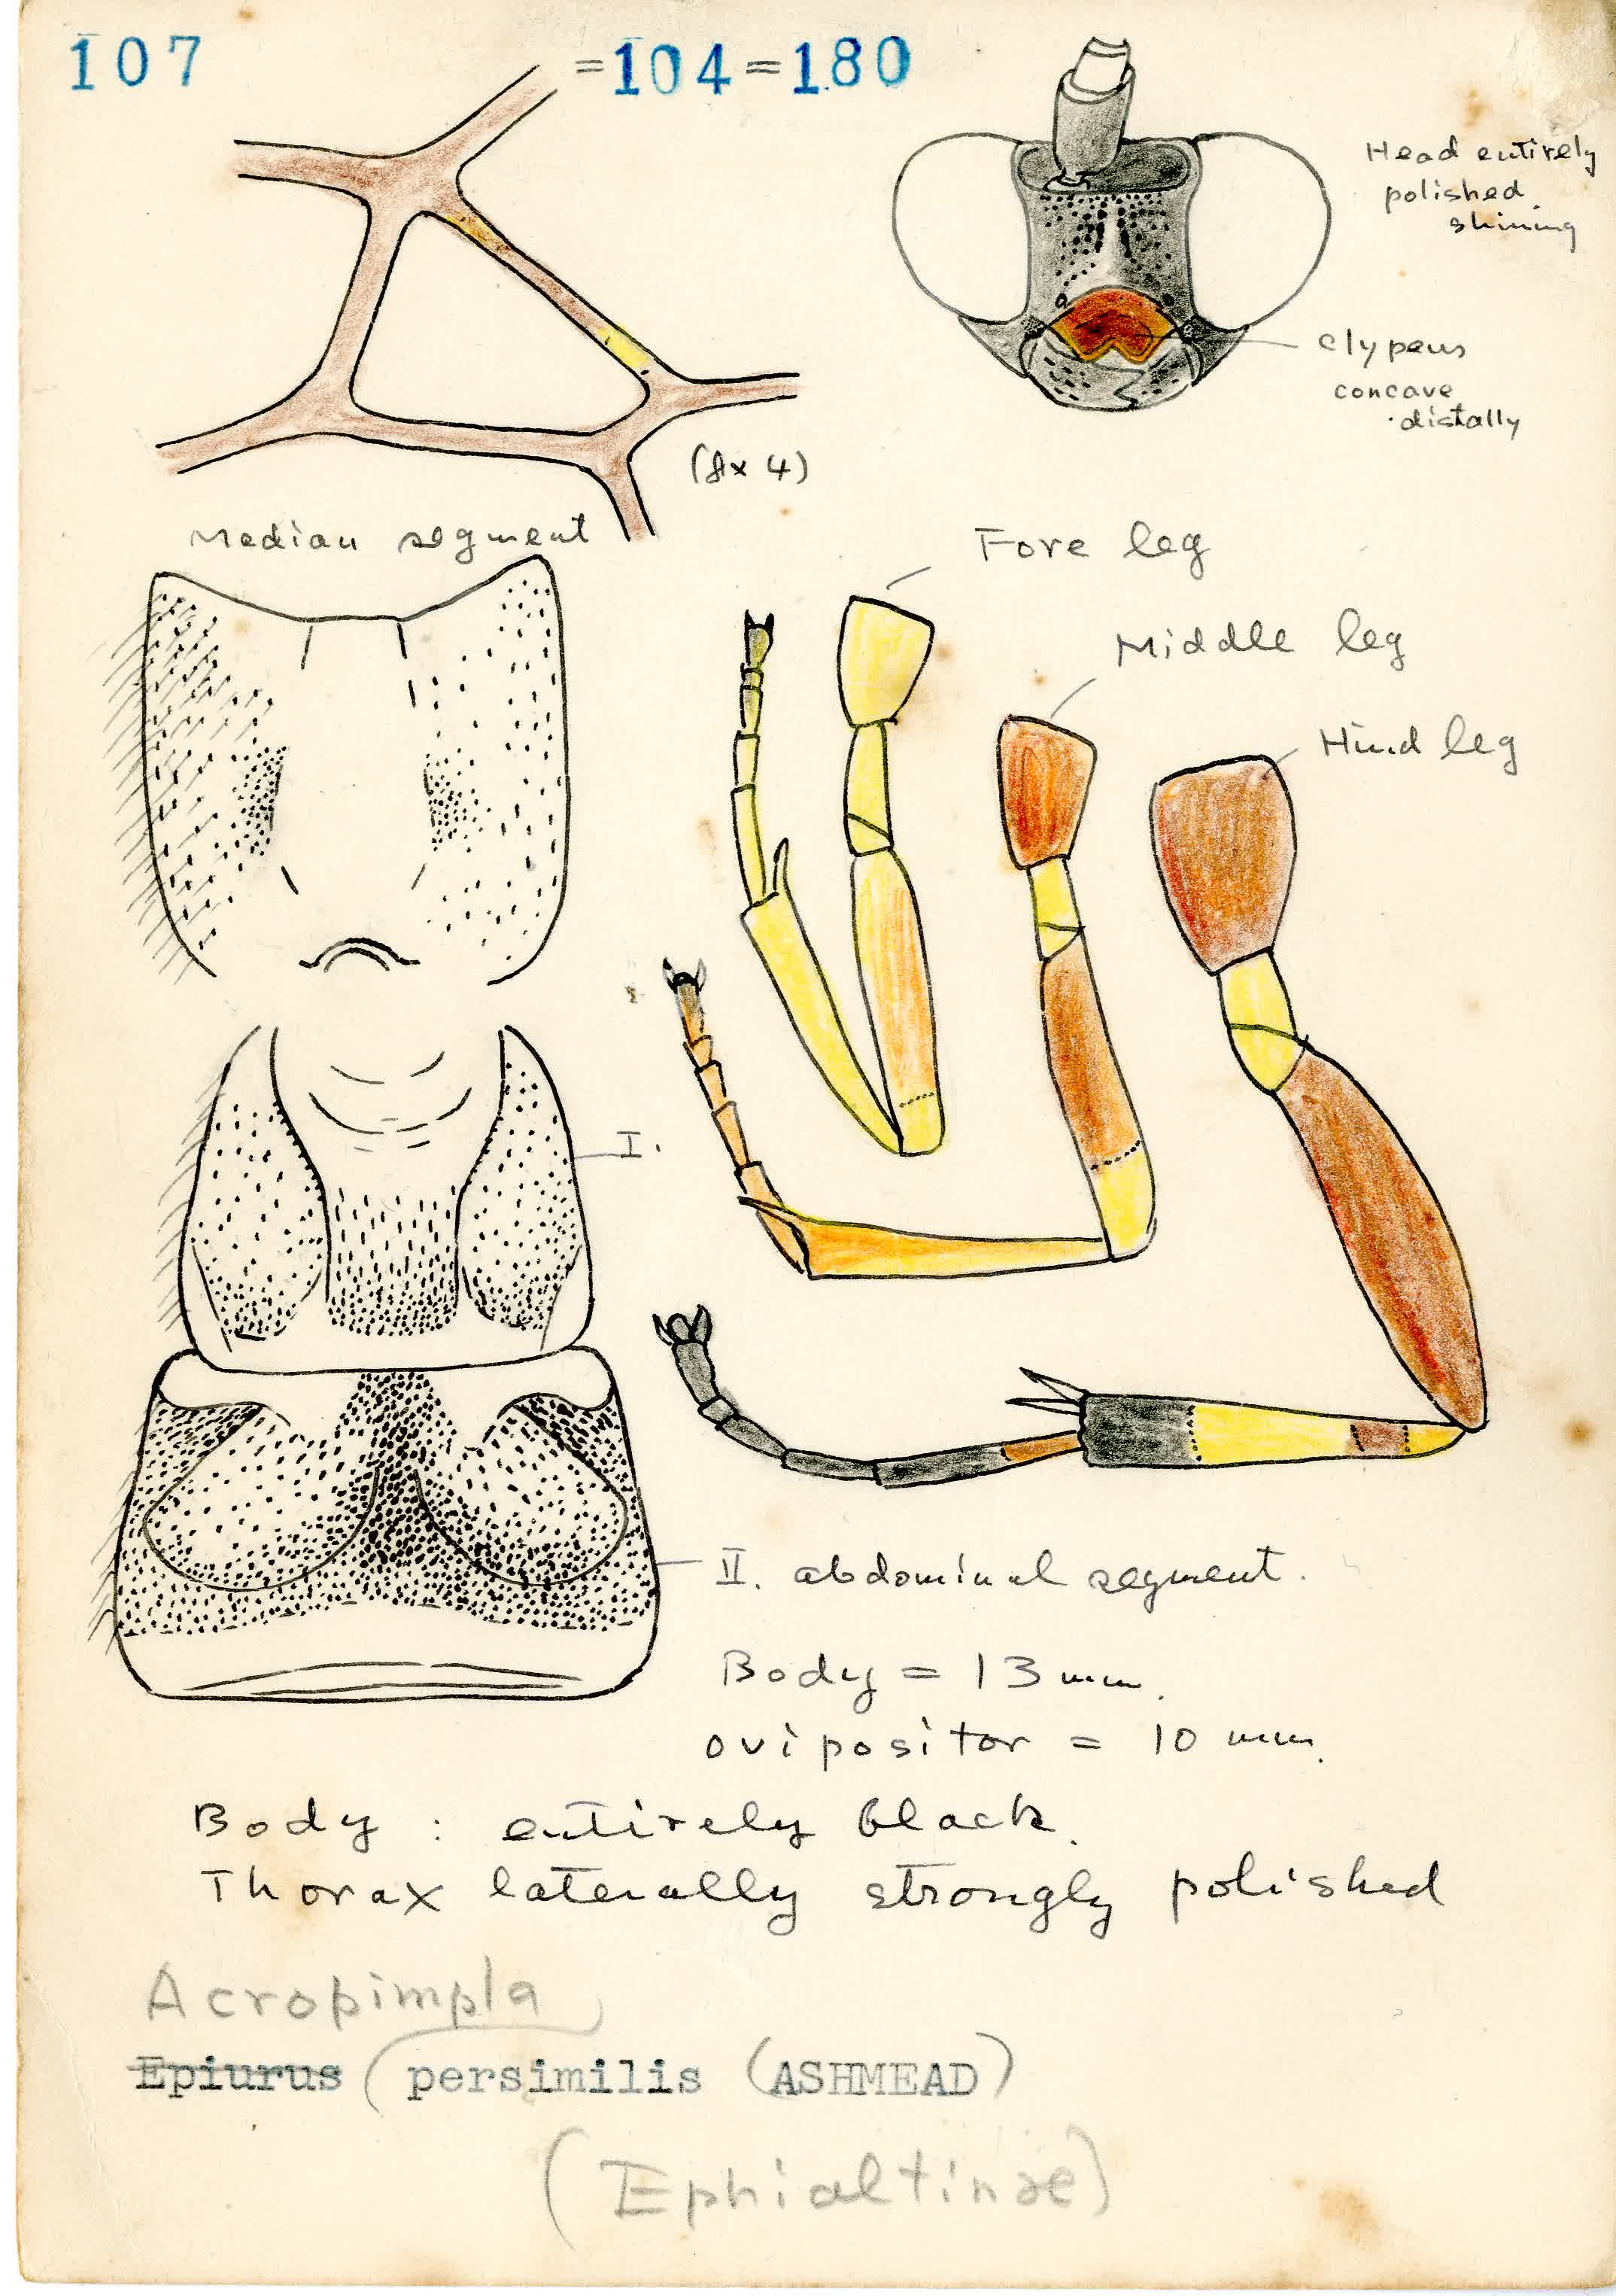 107 =104=180
Head entirely
polished
shining
clypeus
concave
distally
(8x4)
Median segment
Fore leg
Middle leg
Hind leg
I.
II. abdominal segment.
Body = 13 mm.
ovipositor = 10 mm.
Body : entirely black.
Thorax laterally strongly polished
Acropimpla
Epiurus persimilis (ASHMEAD)
(Ephialtinae)